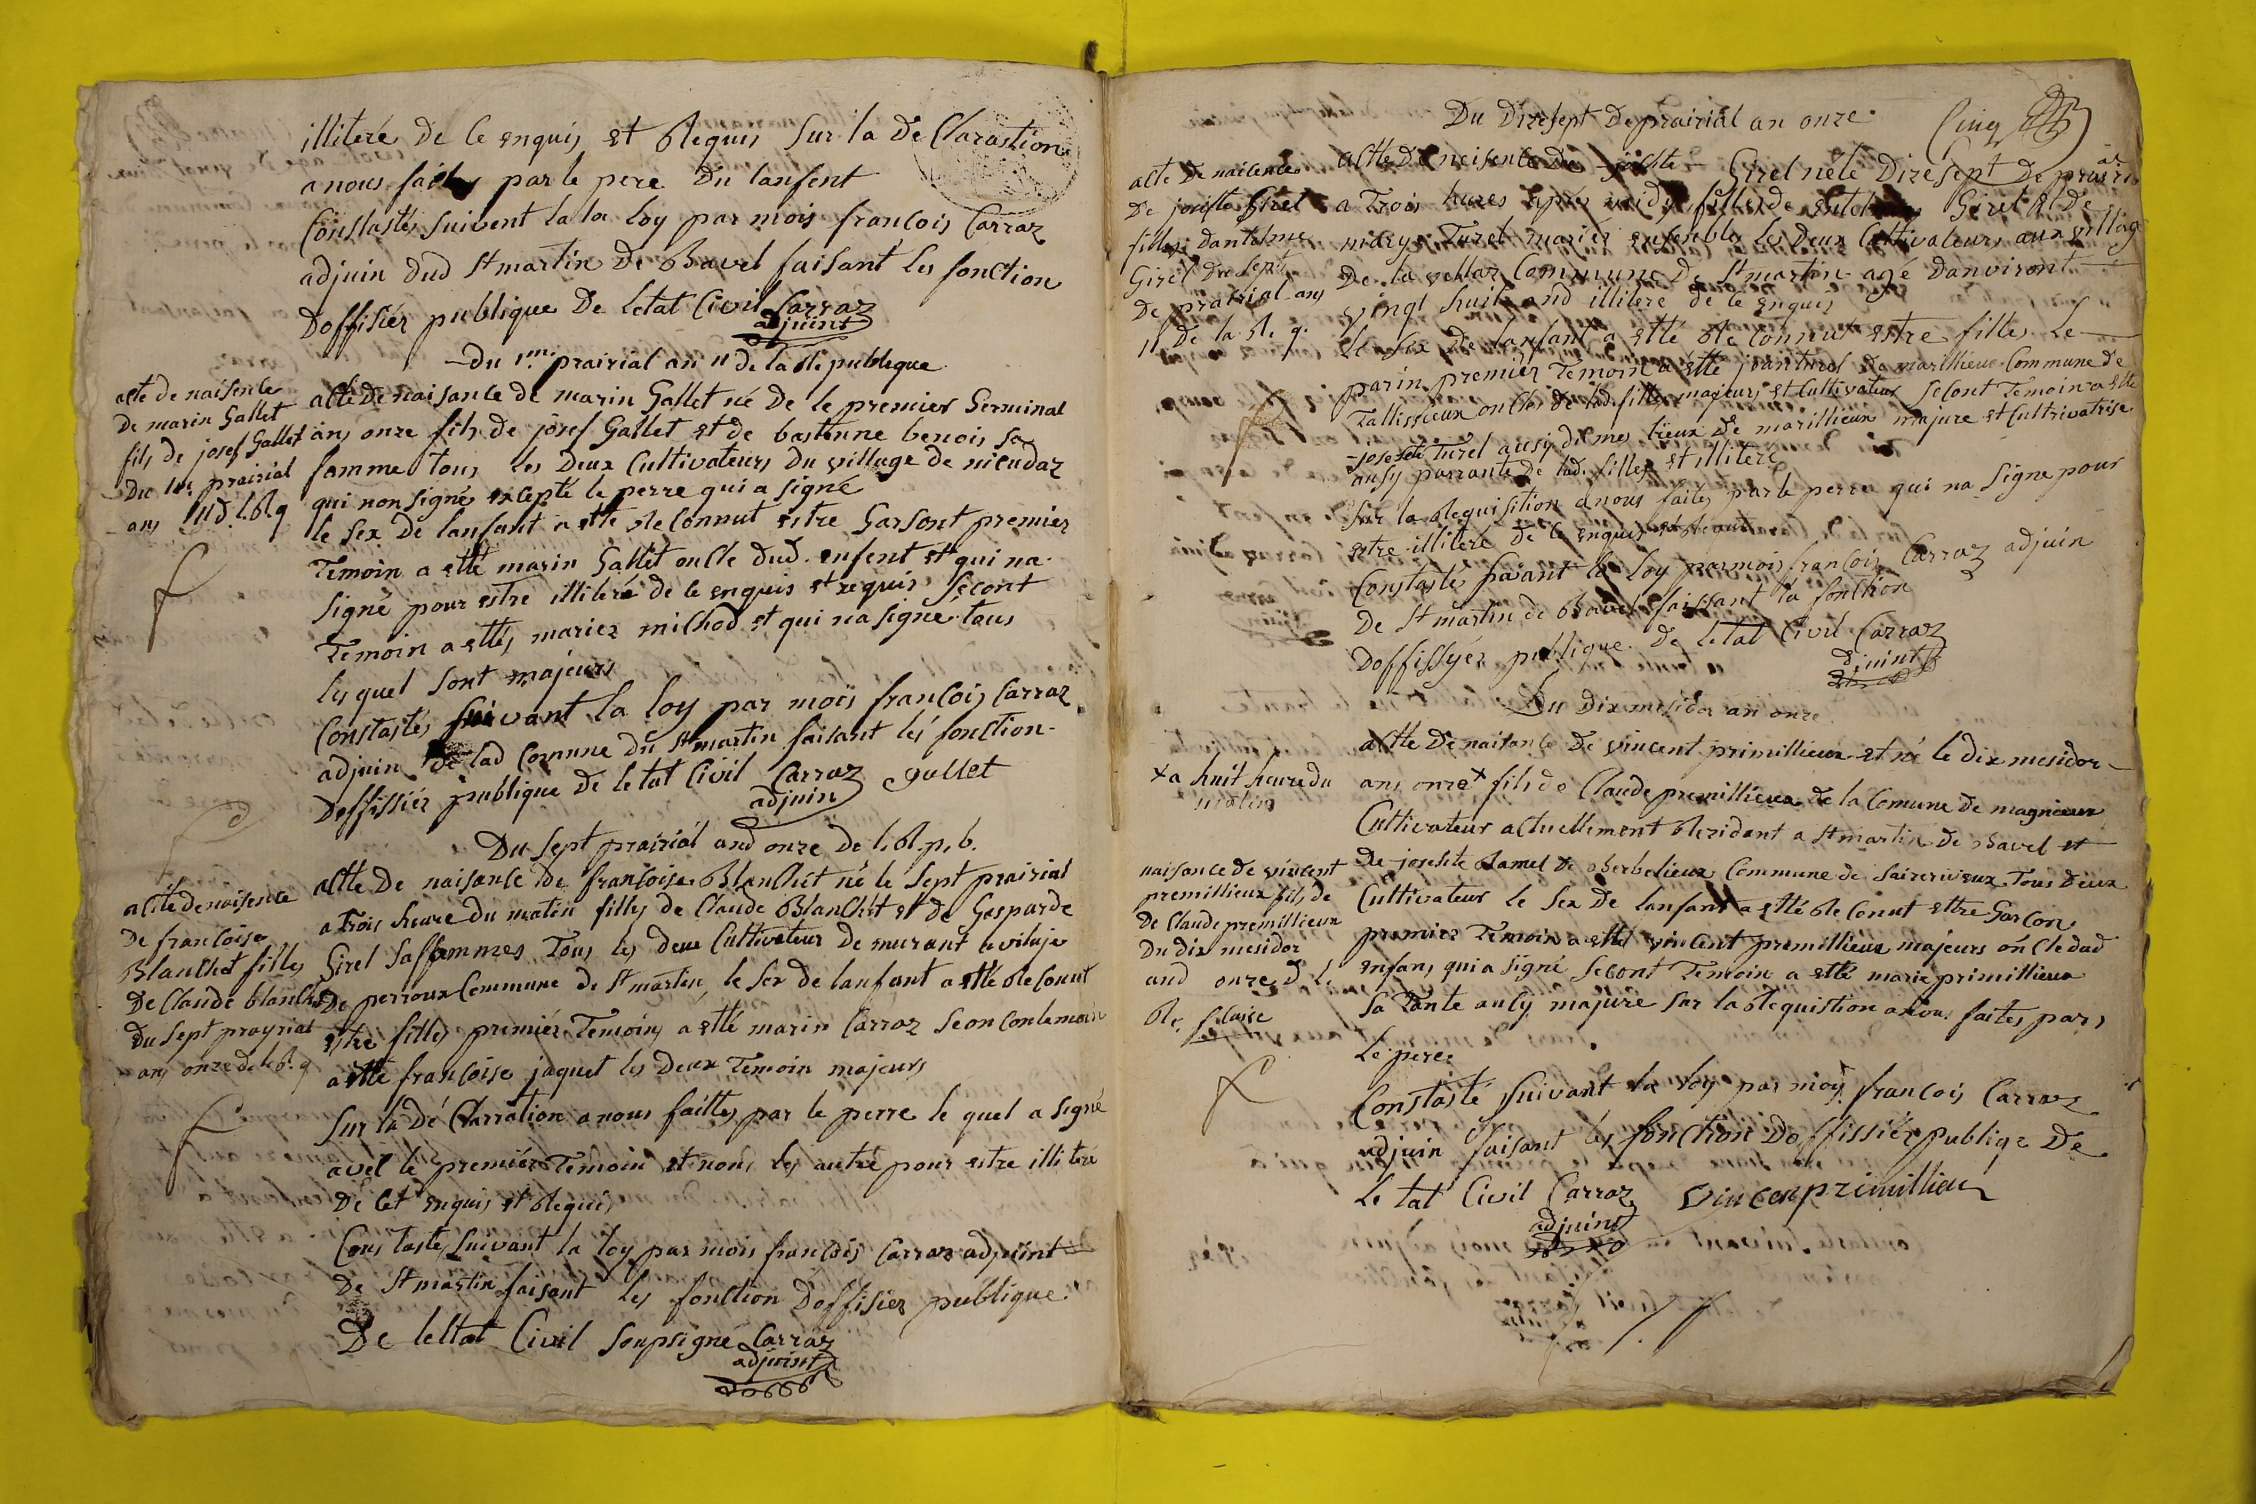 illiteré de ce enquis et Requis sur la de Clarastion
a nous faites par le pere du lanfent
Constastés suivent la la loy par mois francois Carraz
adjuin dud St martin de Bavel faisant les fonction
doffisiér publique de letat Civil Carraz
adjuint
Du 1m. prairial an 11 de la Republeque
acte de naisence
de marin Gallet
fils de josef Gallet
du 1er prairial
ans 11 d. l. R q
atte de naisance de marin Gallet né de le premier Germinal
ans onze fils de josef Gallet et de bastienne benois sa
famme tous les deux Cultivateurs du village de
qui non signé excepté le perre qui a signé
le sex de lanfant a etté Reconnut estre Garsont premier
Temoin a etté marin Gallet oncle dud. enfent et qui na
signé pour estre illiteré de le enquis et requis secont
Temoin a ettés mariez milhod et qui na signe tous
les quel sont majeurs
Constastés suivant la loy par mois francois Carraz
adjuin de lad Comune du St martin faisant lés fonction
deffissiéz publique de letat Civil Carraz gallet
adjuin
Du sept prairial and onze de l. R. p. b.
acte de naisence
de francoise
Blanchet filles
de Claude blanchet
du sept prayrial
ans onze de le R. q
atte de naisance de francoise Blanchet né le sept prairial
a trois heure du matin filles de Claude Blanchet et de Gasparde
Girel saffemmes Tous les deux Cultivateur de murant a vilaje
de perroux Commune de St martin, le sex de lanfant a etté Reconut
estre filles premiér Temoins a etté marin Carraz seon contemoin
a etté francoise jaquet les deux Temoin majeurs
sur la dé Clarration a nous faittes par le perre le quel a signé
avec le premiére Temoin et nons les autre pour estre illiteré
de Cet enquis et Requis
Constastés suivant la loy par mois francois Carraz adjuint
de St martin faisant les fonction doffisiez publique
De lettat Civil soupsigné Carraz
adjuint
Du dizesept de prairial an onze
Cinq
atte de naicence
de josette Girel
filles dantelme
Girel du sept
de prairial ans
11 de la R. q.
atte de neisence de josette Girel néle dizesept de prairial
a Trois hures aprés midy filles de Girel et de
marye Turel mariés ensembles les deux Cultivateurs aux village
De la vellaz Commune de St martin agé danviront
vingt huit and illitere de le enquis
le sex de lanfant a etté Reconnut estre filles le
parin premier Temoin a etté jean turel de marllieux Commune de
Tallissieux oncles de lad. filles majeurs et Cultivateur secont Temoin a ette
josette Turel ausy dumes lieux de marillieux majure et Cultrivatrise
ausy parrante de lad. filles et illitere
sur la Requisition a nous faites par le perre qui na signe pour
estre illitere de le enquis et Requis
Constasté suivant la loy par mois francois Carraz adjuin
De St martin de Bavel faissant la fonction
Doffissyér publique de letat Civil Carraz
adjuint
Du dix mesidor an onze
atte de naisance de vincent primillieux et né le dix mesidor
+ a huit heure du
matin
ans onze + fils de Claude premillieux de la Comune de magnieux
Cultivateur actuellement Rezidant a St martin de Bavel et
naisance de vincent
premillieux fils de
de Claude premillieux
du dix mesidor
and onze d l.
de josette Ramel de Berbelieux Commune de Tous deux
Cultivateur le sex de lanfant a etté Reconut ettre Garcon
premier Temoin a etté vincent premillieux majeurs oncle dud
enfans qui a signé secont Temoin a etté marie primillieux
sa Tante aucy majure sur la Requistion a nous faites par
le pere
Constasté suivant la loy par moy francois Carraz
adjuin faisant lés fonction Doffissiér publiqe De
le tat Civil Carraz vincen primillieu
adjuint